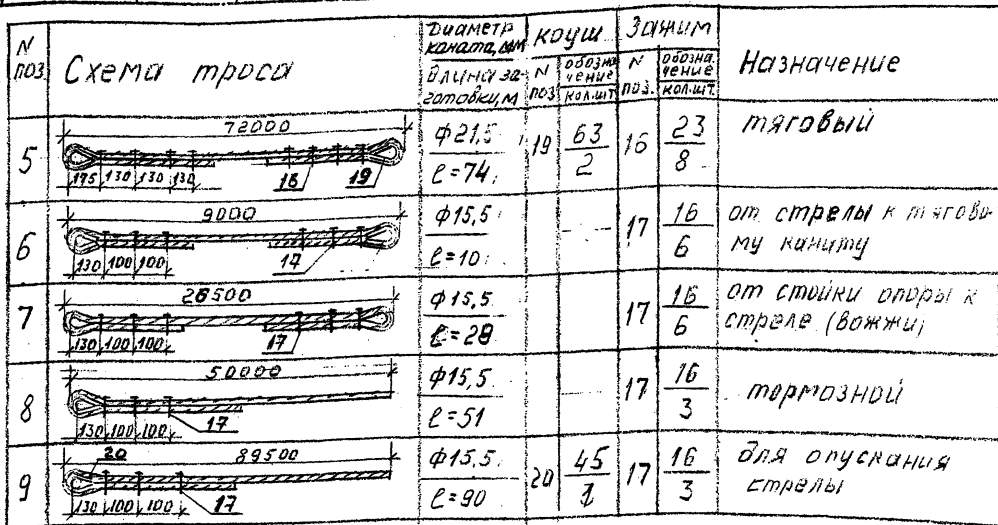 N поз. Схема троса Диаметр каната, мм Длина заготовки, м коуш Зажим Назначение
N поз обозначение кол.шт N поз. обозначение кол.шт.
5 72000 195 130 130 130 16 19 ф21,5 ℓ=74 19 63 2 16 23 8 тяговый
6 9000 130 100 100 17 ф15,5 ℓ=10 17 16 6 от стрелы к тяговому каниту
7 28500 130 100 100 17 ф15,5 ℓ=28 17 16 6 от стойки опоры к стреле (вожжи)
8 50000 130 100 100 17 ф15,5 ℓ=51 17 16 3 тормозной
9 20 89500 130 100 100 17 ф15,5 ℓ=90 20 45 1 17 16 3 для опускания стрелы